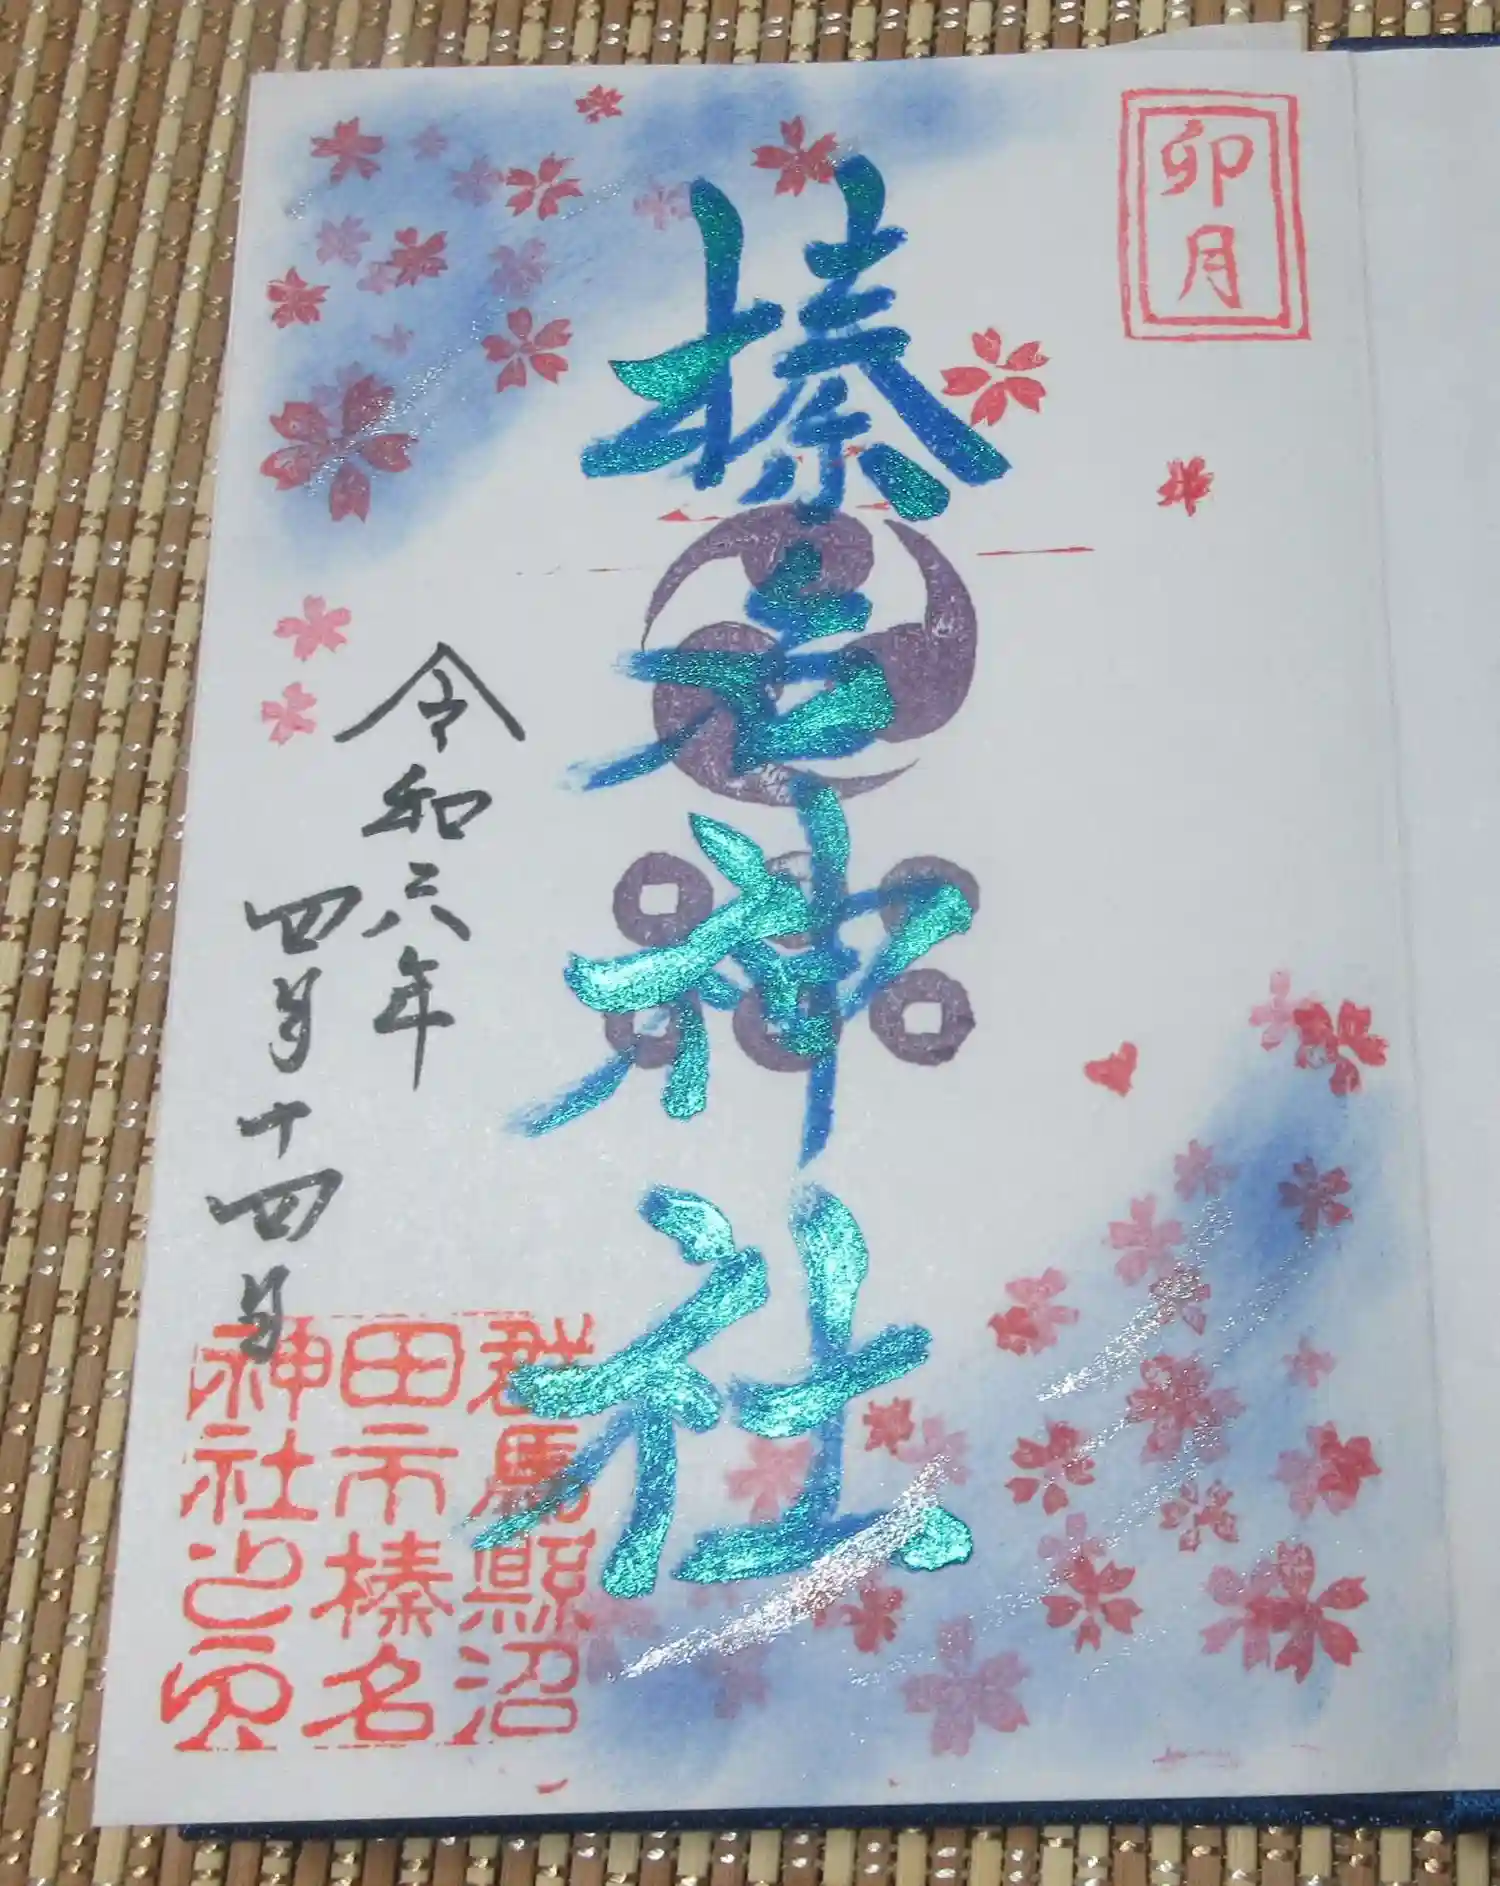 卯月
榛名神社
令和六年
四月十四日
群馬縣沼
田市榛名
神社之印